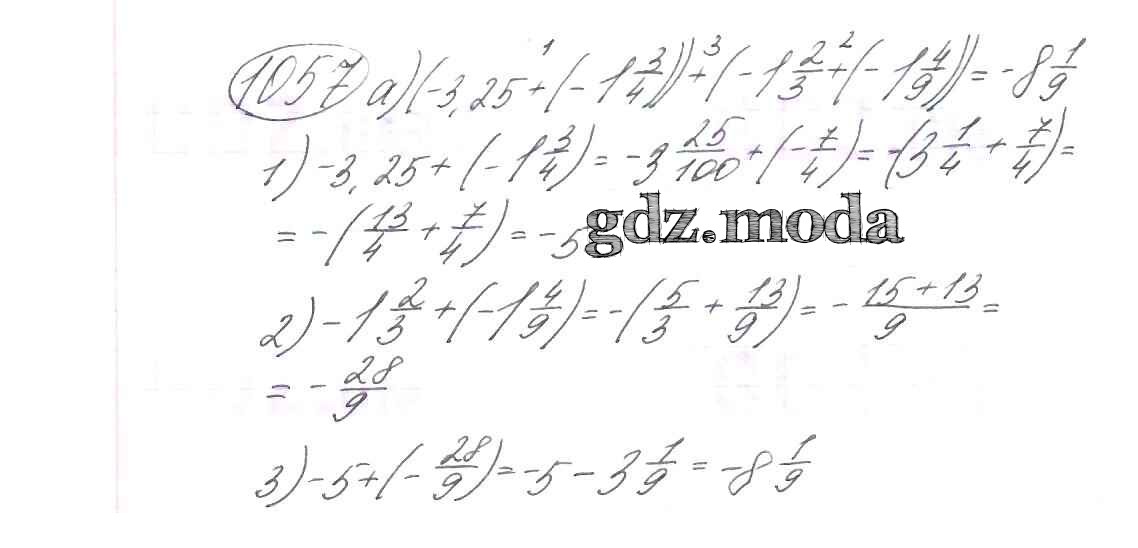 1057 а) (-3,25 + (-1 3/4)) + (-1 2/3 + (-1 4/9)) = -8 1/9
1) -3,25 + (-1 3/4) = -3 25/100 + (-7/4) = -(3 1/4 + 7/4) =
= -(13/4 + 7/4) = -5
gdz.moda
2) -1 2/3 + (-1 4/9) = -(5/3 + 13/9) = - (15+13)/9 =
= - 28/9
3) -5 + (- 28/9) = -5 - 3 1/9 = -8 1/9